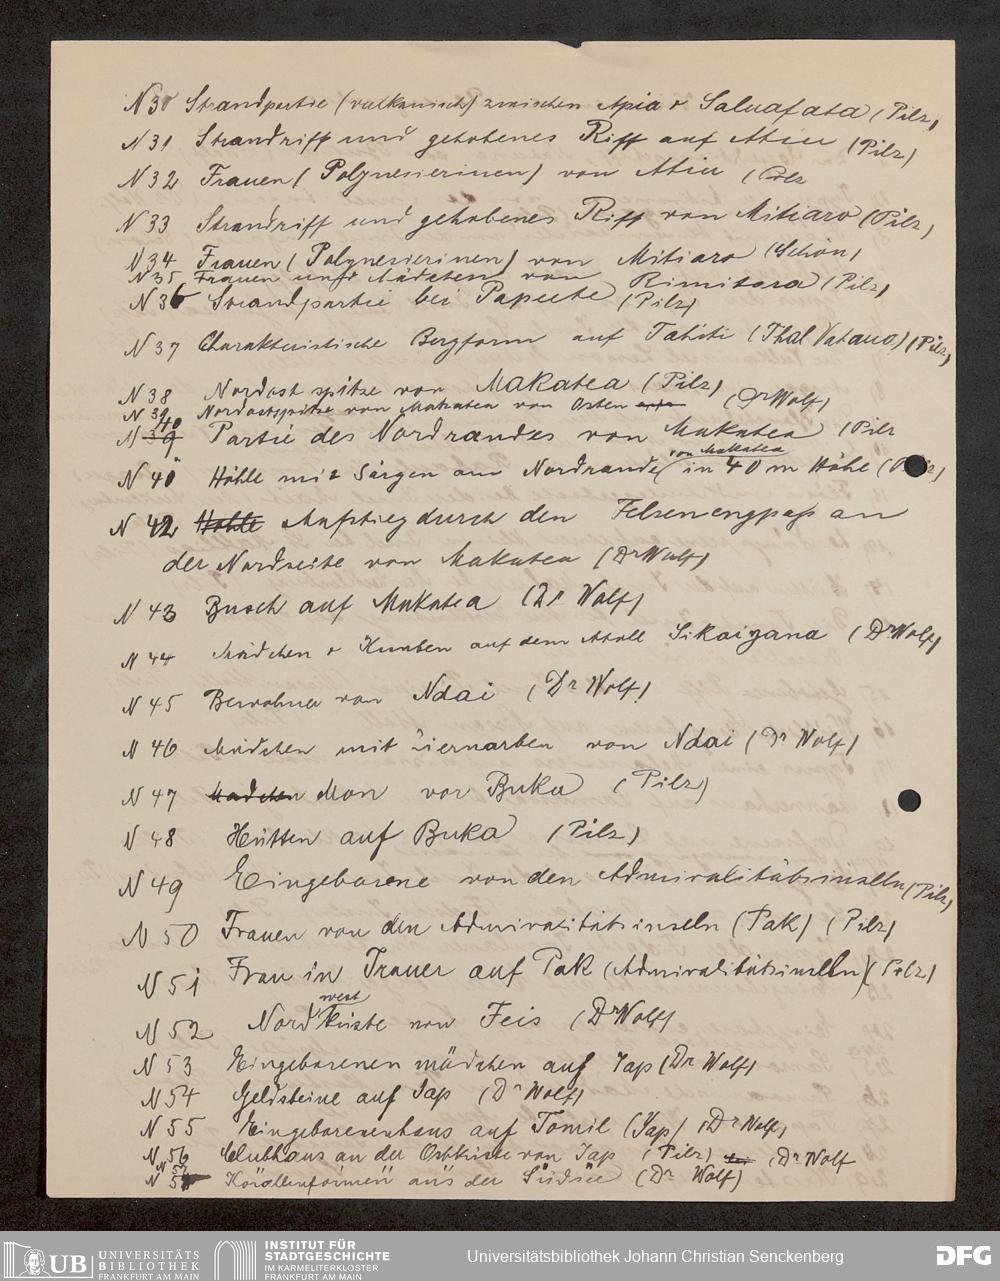 N 30 Strandpartie (vulkanisch) zwischen Apia & Saluafata (Pilz)
N 31 Strandriff und gehobenes Riff auf Atiu (Pilz)
N 32 Frauen (Polynesierinen) von Atiu (Pilz
N 33 Strandriff und gehobenes Riff von Mitiaro (Pilz)
N 34 Frauen (Polynesierinen) von Mitiaro (Schön)
N 35 Frauen und Mädchen von Rimitara (Pilz)
N 36 Strandpartie bei Papeete (Pilz)
N 37 Charakteristische Bergform auf Tahiti (Thal Vatauo) (Pilz)
N 38 Nordost spitze von Makatea (Pilz)
N 39 Nordostspitze von Makatea von Osten (Dr Wolf)
N 40 Partie des Nordrandes von Makatea (Pilz
N 41 Höhle mit Särgen am Nordrande von Makatea (in 40 m Höhe (Pilz)
N 42 Höhle Aufstieg durch den Felsenengpaß an
der Nordseite von Makatea (Dr Wolf)
N 43 Busch auf Makatea (Dr Wolf)
N 44 Mädchen & Knaben auf dem Atoll Sikaiyana (Dr Wolf)
N 45 Bewohner von Ndai (Dr Wolf)
N 46 Mädchen mit Ziernarben von Ndai (Dr Wolf)
N 47 Madchen Man von Buka (Pilz)
N 48 Hütten auf Buka (Pilz)
N 49 Eingeborene von den Admiralitätsinseln (Pilz)
N 50 Frauen von den Admiralitätsinseln (Pak) (Pilz)
N 51 Frau in Trauer auf Pak (Admiralitätsinseln) (Pilz)
N 52 Nordwestküste von Feis (Dr Wolf)
N 53 Eingeborenen mädchen auf Jap (Dr Wolf)
N 54 Geldsteine auf Jap (Dr Wolf)
N 55 Eingeborenenhaus auf Tomil (Jap) (Dr Wolf)
N 56 Clubhaus an der Ostküste von Jap (Pilz) (Dr Wolf
N 57 Korallenformen aus der Südsee (Dr Wolf)
UB UNIVERSITÄTS
BIBLIOTHEK
FRANKFURT AM MAIN
INSTITUT FÜR
STADTGESCHICHTE
IM KARMELITERKLOSTER
FRANKFURT AM MAIN
Universitätsbibliothek Johann Christian Senckenberg
DFG